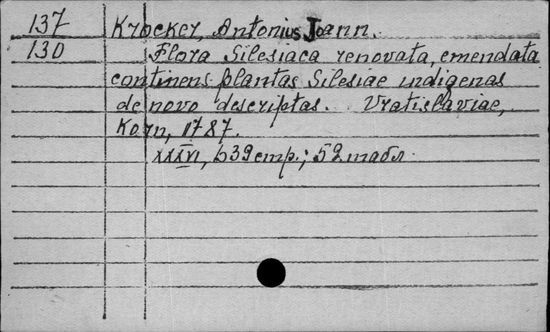 137 Krocker, Antonius Joann.
130 Flora Silesiaca renovata, emendata
continens plantas Silesiae indigenas
de novo descriptas. Vratislaviae,
Korn, 1787.
XXXVI, 639 стр.; 52 табл.